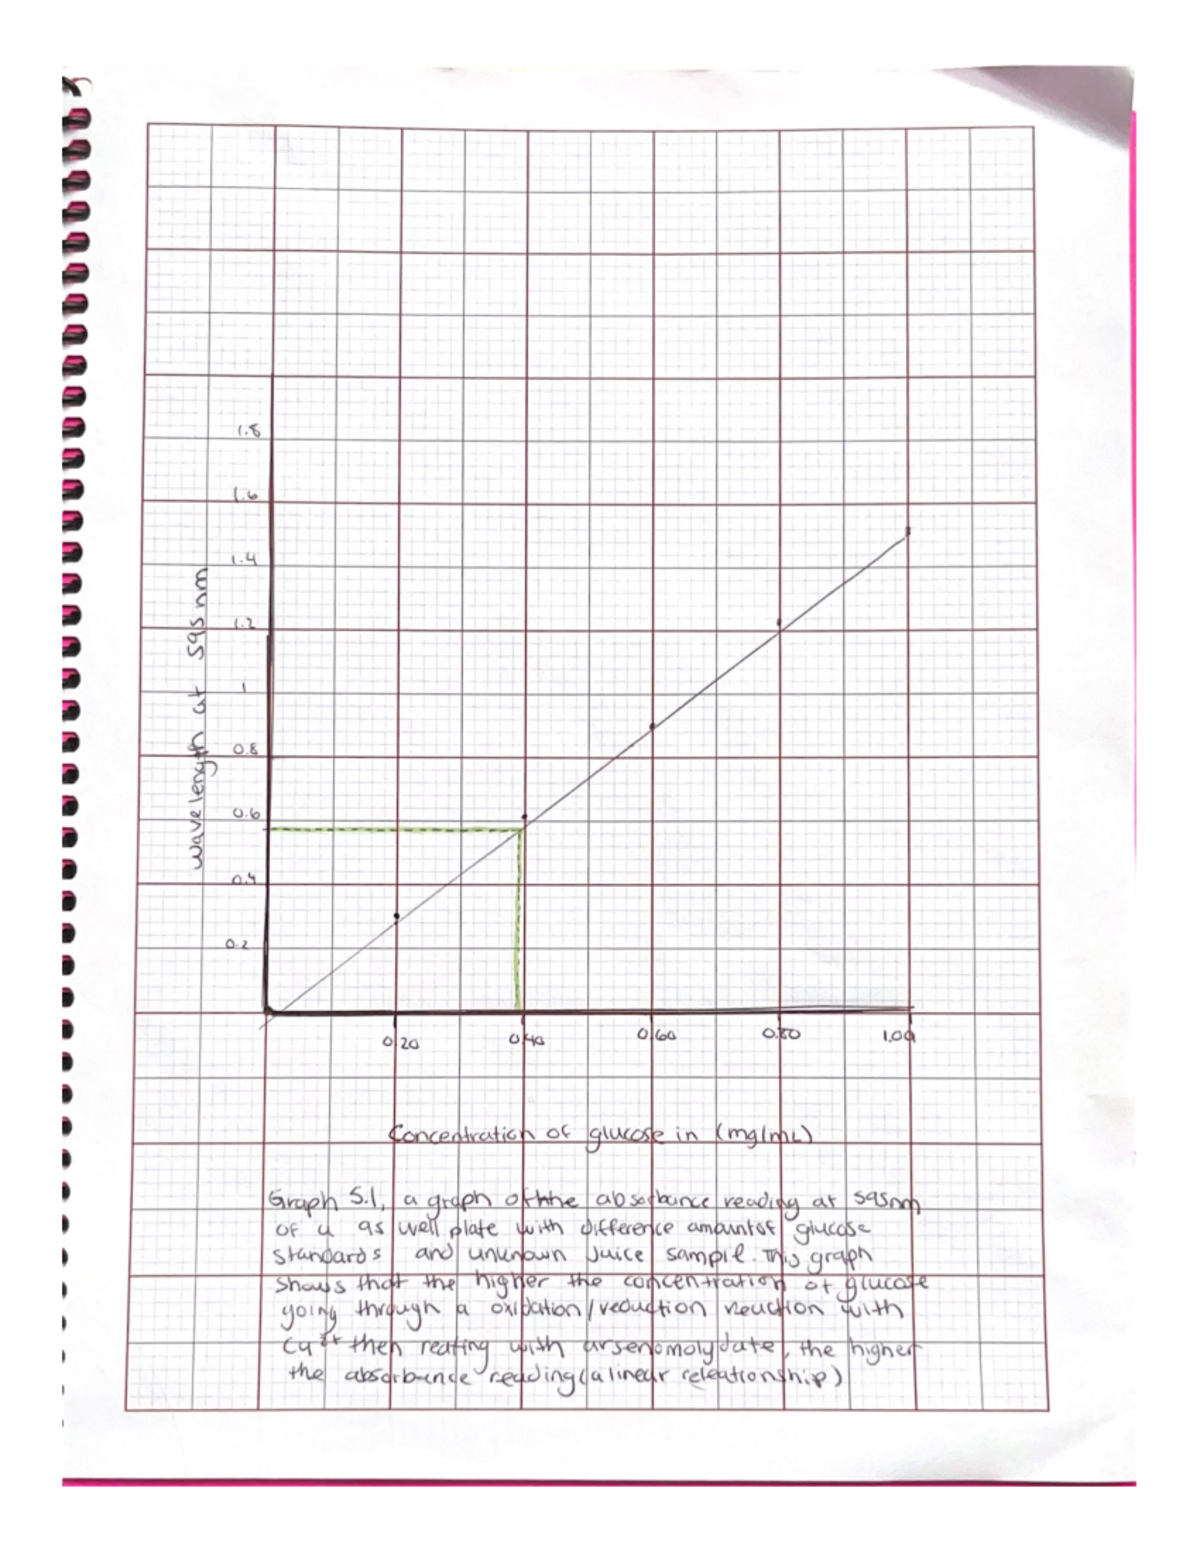 1.8
1.6
1.4
1.2
1
0.8
0.6
0.4
0.2
wavelength at 595nm
0.20
0.40
0.60
0.80
1.00
Concentration of glucose in (mg/mL)
Graph 5.1, a graph of the absorbance reading at 595nm
of a 95 well plate with difference amount of glucose
standards and unknown juice sample. This graph
shows that the higher the concentration of glucose
going through a oxidation/reduction reaction with
Cu²⁺ then reating with arsenomolydate, the higher
the absorbance reading (a linear releationship)